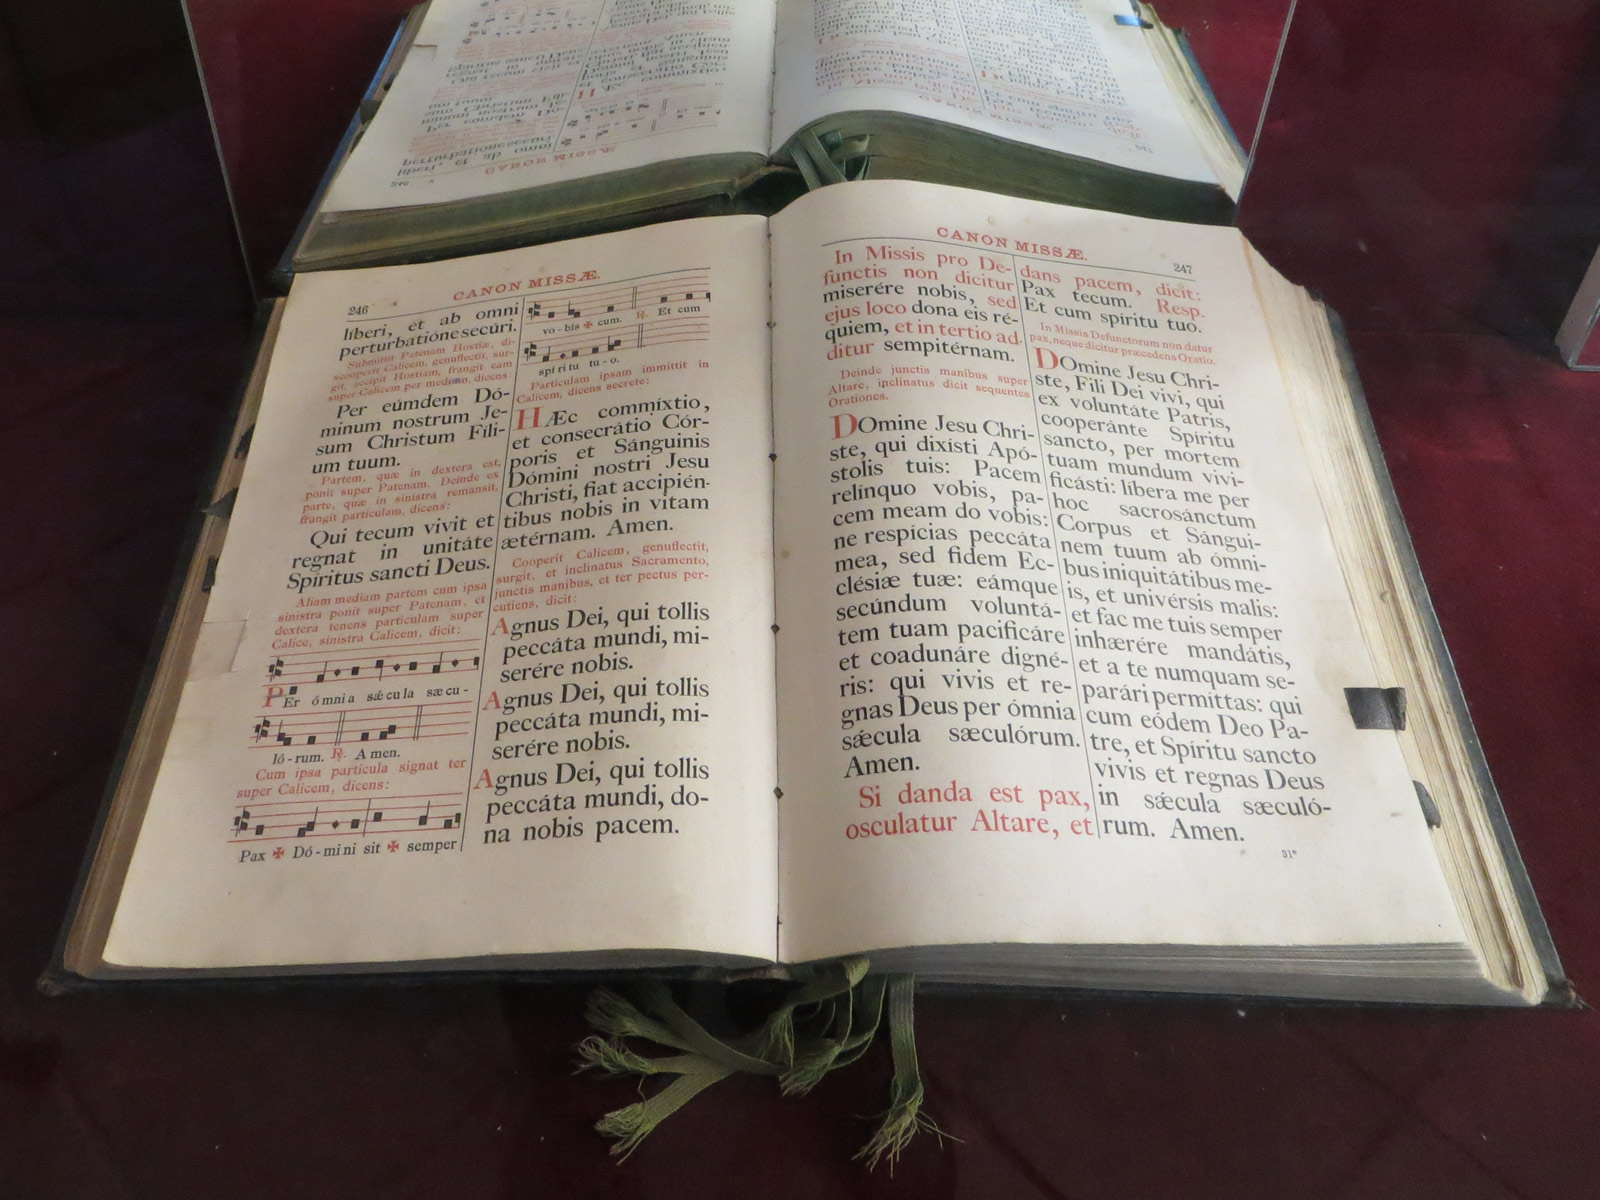 246
CANON MISSÆ.
liberi, et ab omni
perturbatióne secúri.
Submittit Patenam Hostiæ, di-
scooperit Calicem, genuflectit, sur-
git, accipit Hostiam, frangit eam
super Calicem per medium, dicens
Per eúmdem Dó-
minum nostrum Je-
sum Christum Fili-
um tuum.
Partem, quæ in dextera est,
ponit super Patenam. Deinde ex
parte, quæ in sinistra remansit,
frangit particulam, dicens:
Qui tecum vivit et
regnat in unitáte
Spíritus sancti Deus.
Aliam mediam partem cum ipsa
sinistra ponit super Patenam, et
dextera tenens particulam super
Calice, sinistra Calicem, dicit:
PEr ómnia sǽcula sæcu-
ló-rum. ℟. Amen.
Cum ipsa particula signat ter
super Calicem, dicens:
Pax ✠ Dó-mini sit ✠ semper
vo-bís ✠ cum. ℟. Et cum
spíritu tu-o.
Particulam ipsam immittit in
Calicem, dicens secrete:
HÆc commíxtio,
et consecrátio Cór-
poris et Sánguinis
Dómini nostri Jesu
Christi, fiat accipién-
tibus nobis in vitam
ætérnam. Amen.
Cooperit Calicem, genuflectit,
surgit, et inclinatus Sacramento,
junctis manibus, et ter pectus per-
cutiens, dicit:
Agnus Dei, qui tollis
peccáta mundi, mi-
serére nobis.
Agnus Dei, qui tollis
peccáta mundi, mi-
serére nobis.
Agnus Dei, qui tollis
peccáta mundi, do-
na nobis pacem.
CANON MISSÆ.
247
In Missis pro De-
functis non dicitur
miserére nobis, sed
ejus loco dona eis ré-
quiem, et in tertio ad-
ditur sempitérnam.
Deinde junctis manibus super
Altare, inclinatus dicit sequentes
Orationes.
DOmine Jesu Chri-
ste, qui dixísti Apó-
stolis tuis: Pacem
relínquo vobis, pa-
cem meam do vobis:
ne respícias peccáta
mea, sed fidem Ec-
clésiæ tuæ: eámque
secúndum voluntá-
tem tuam pacificáre
et coadunáre digné-
ris: qui vivis et re-
gnas Deus per ómnia
sǽcula sæculórum.
Amen.
Si danda est pax,
osculatur Altare, et
dans pacem, dicit:
Pax tecum. Resp.
Et cum spíritu tuo.
In Missis Defunctorum non datur
pax, neque dicitur præcedens Oratio.
DOmine Jesu Chri-
ste, Fili Dei vivi, qui
ex voluntáte Patris,
cooperánte Spíritu
sancto, per mortem
tuam mundum vivi-
ficásti: líbera me per
hoc sacrosánctum
Corpus et Sángui-
nem tuum ab ómni-
bus iniquitátibus me-
is, et univérsis malis:
et fac me tuis semper
inhærére mandátis,
et a te numquam se-
parári permíttas: qui
cum eódem Deo Pa-
tre, et Spíritu sancto
vivis et regnas Deus
in sǽcula sæculó-
rum. Amen.
31*